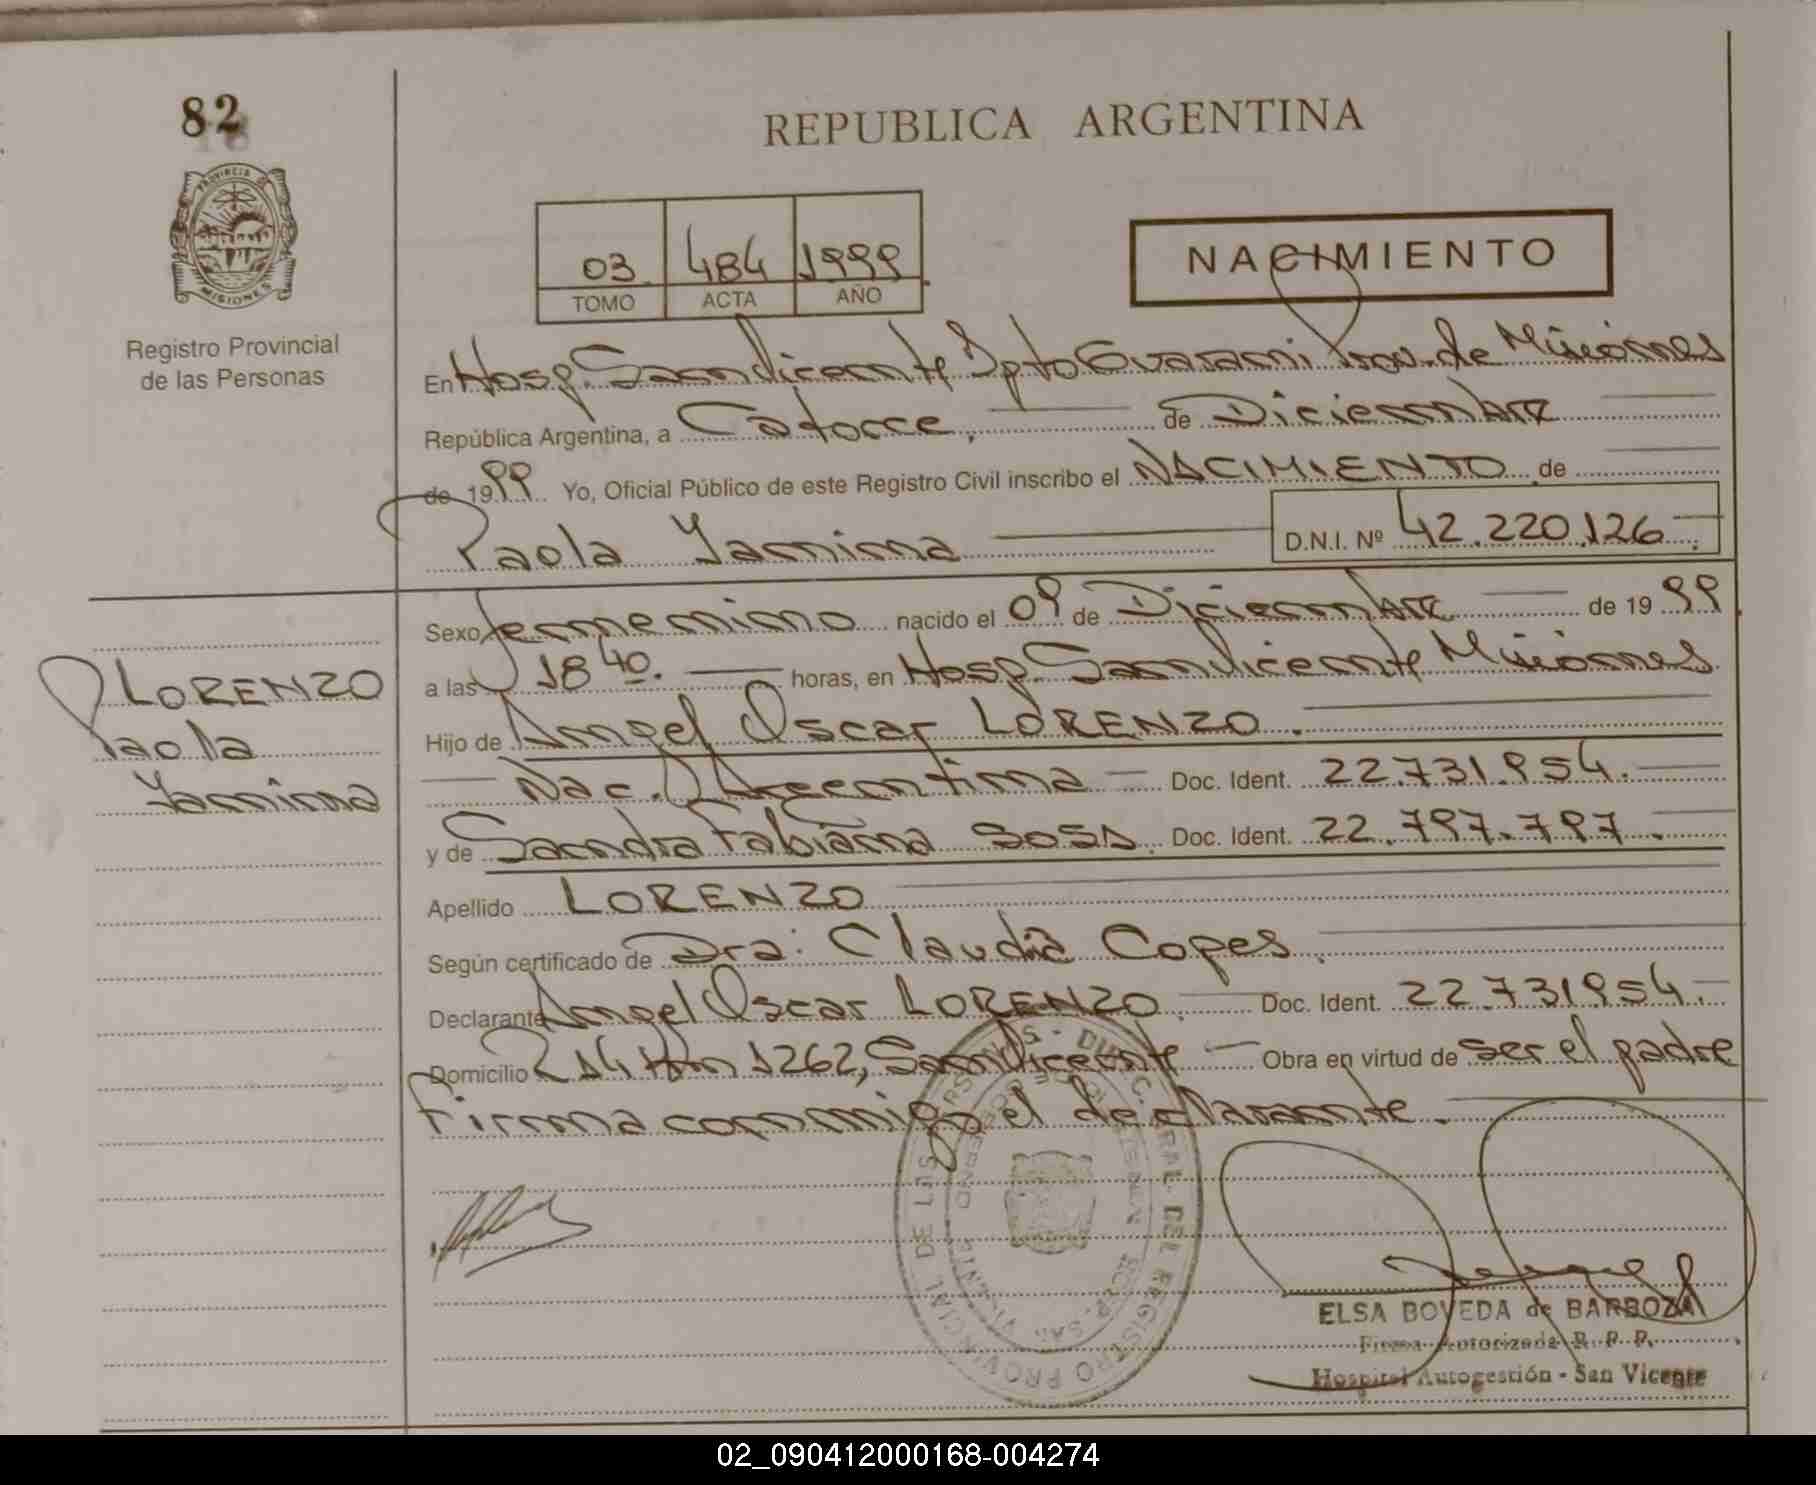 82
PROVINCIA
MISIONES
Registro Provincial
de las Personas
REPUBLICA ARGENTINA
03 484 1999
TOMO ACTA AÑO
NACIMIENTO
En Hosp. San Vicente Dpto Guarani Prov. de Misiones
República Argentina, a Catorce, de Diciembre
de 1999 Yo, Oficial Público de este Registro Civil inscribo el NACIMIENTO de
Paola Yamina D.N.I. Nº 42.220.126
Sexo femenino nacido el 09 de Diciembre de 1999
a las 18 40. horas, en Hosp. San Vicente Misiones
Hijo de Angel Oscar LORENZO.
Nac. Argentina Doc. Ident. 22.731.954.
y de Sandra Fabiana SOSA. Doc. Ident. 22.797.797.
Apellido LORENZO
Según certificado de Dra: Claudia Copes.
Declarante Angel Oscar LORENZO. Doc. Ident. 22.731954.
Domicilio R 14 Km 1262, San Vicente Obra en virtud de ser el padre
Firma conmigo el declarante.
LORENZO
Paola
Yamina
ELSA BOVEDA de BARBOZA
Firma Autorizada R. P. P.
Hospital Autogestión - San Vicente
02_090412000168-004274